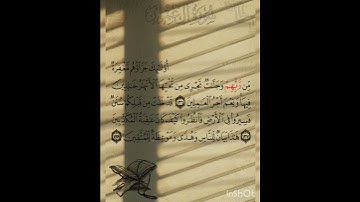 أُو۟لَٰٓئِكَ جَزَآؤُهُم مَّغْفِرَةٌ
مِّن رَّبِّهِمْ وَجَنَّٰتٌ تَجْرِى مِن تَحْتِهَا ٱلْأَنْهَٰرُ خَٰلِدِينَ
فِيهَا وَنِعْمَ أَجْرُ ٱلْعَٰمِلِينَ ١٣٦ قَدْ خَلَتْ مِن قَبْلِكُمْ سُنَنٌ
فَسِيرُوا۟ فِى ٱلْأَرْضِ فَٱنظُرُوا۟ كَيْفَ كَانَ عَٰقِبَةُ ٱلْمُكَذِّبِينَ
١٣٧ هَٰذَا بَيَانٌ لِّلنَّاسِ وَهُدًى وَمَوْعِظَةٌ لِّلْمُتَّقِينَ ١٣٨
InShOt